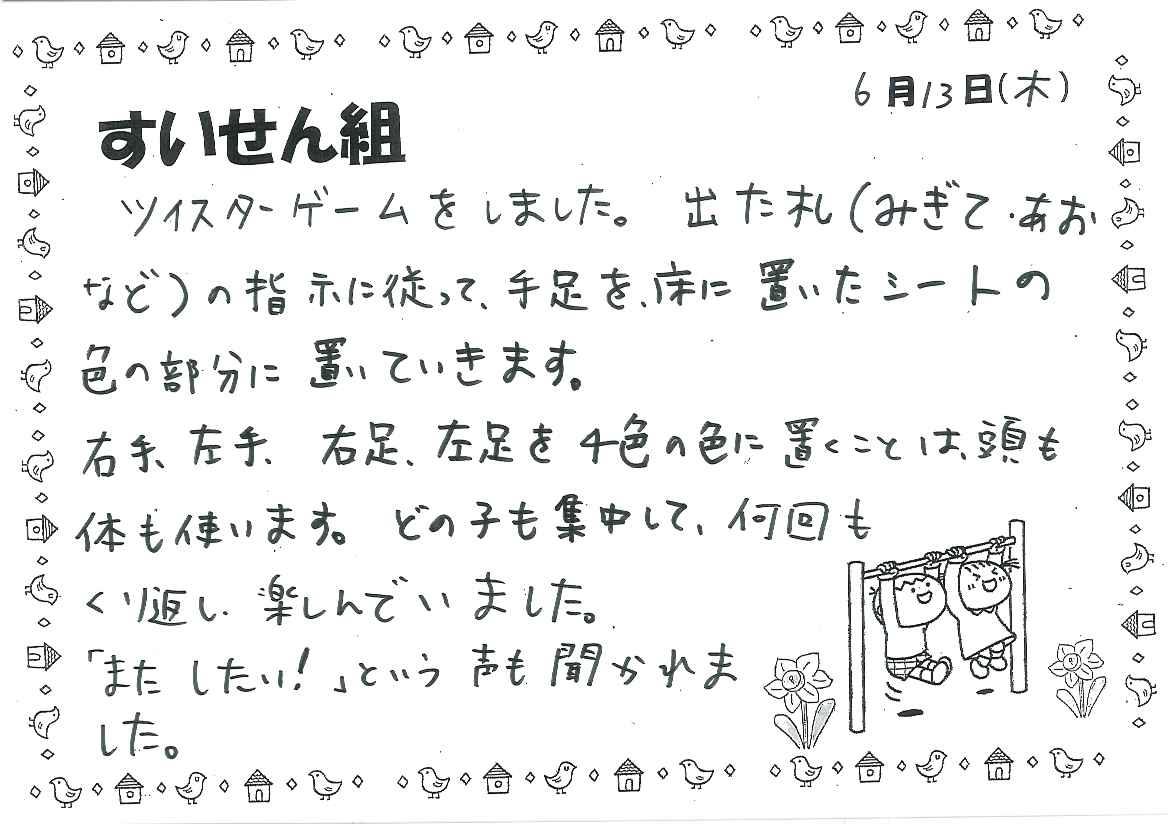 6月13日(木)
すいせん組
ツイスターゲームをしました。 出た札(みぎて・あお
など)の指示に従って、手足を、床に置いたシートの
色の部分に置いていきます。
右手、左手、右足、左足を4色の色に置くことは、頭も
体も使います。どの子も集中して、何回も
くり返し、楽しんでいました。
「またしたい!」という声も聞かれま
した。